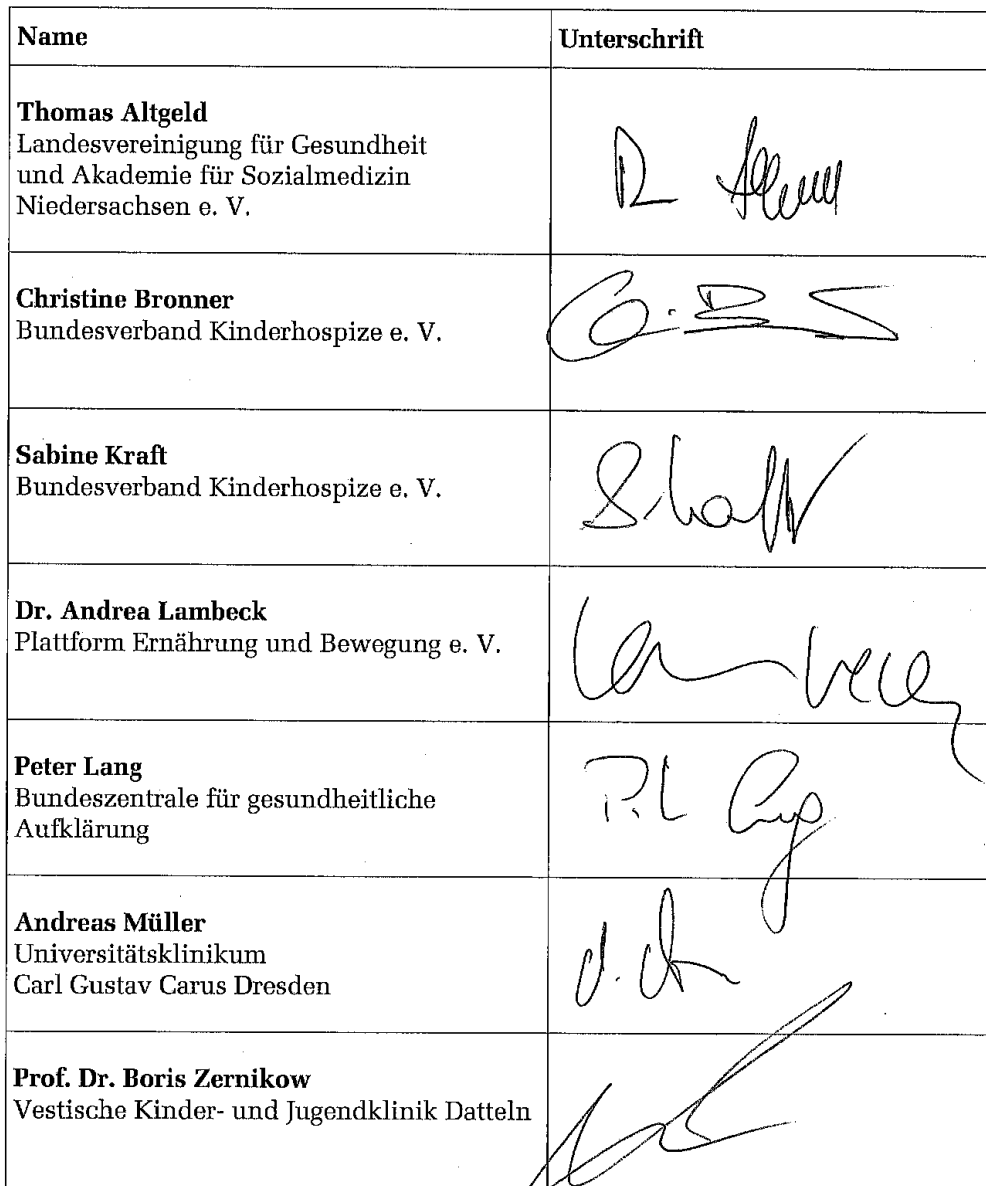 Name
Unterschrift
Thomas Altgeld
Landesvereinigung für Gesundheit
und Akademie für Sozialmedizin
Niedersachsen e. V.
Christine Bronner
Bundesverband Kinderhospize e. V.
Sabine Kraft
Bundesverband Kinderhospize e. V.
Dr. Andrea Lambeck
Plattform Ernährung und Bewegung e. V.
Peter Lang
Bundeszentrale für gesundheitliche
Aufklärung
Andreas Müller
Universitätsklinikum
Carl Gustav Carus Dresden
Prof. Dr. Boris Zernikow
Vestische Kinder- und Jugendklinik Datteln